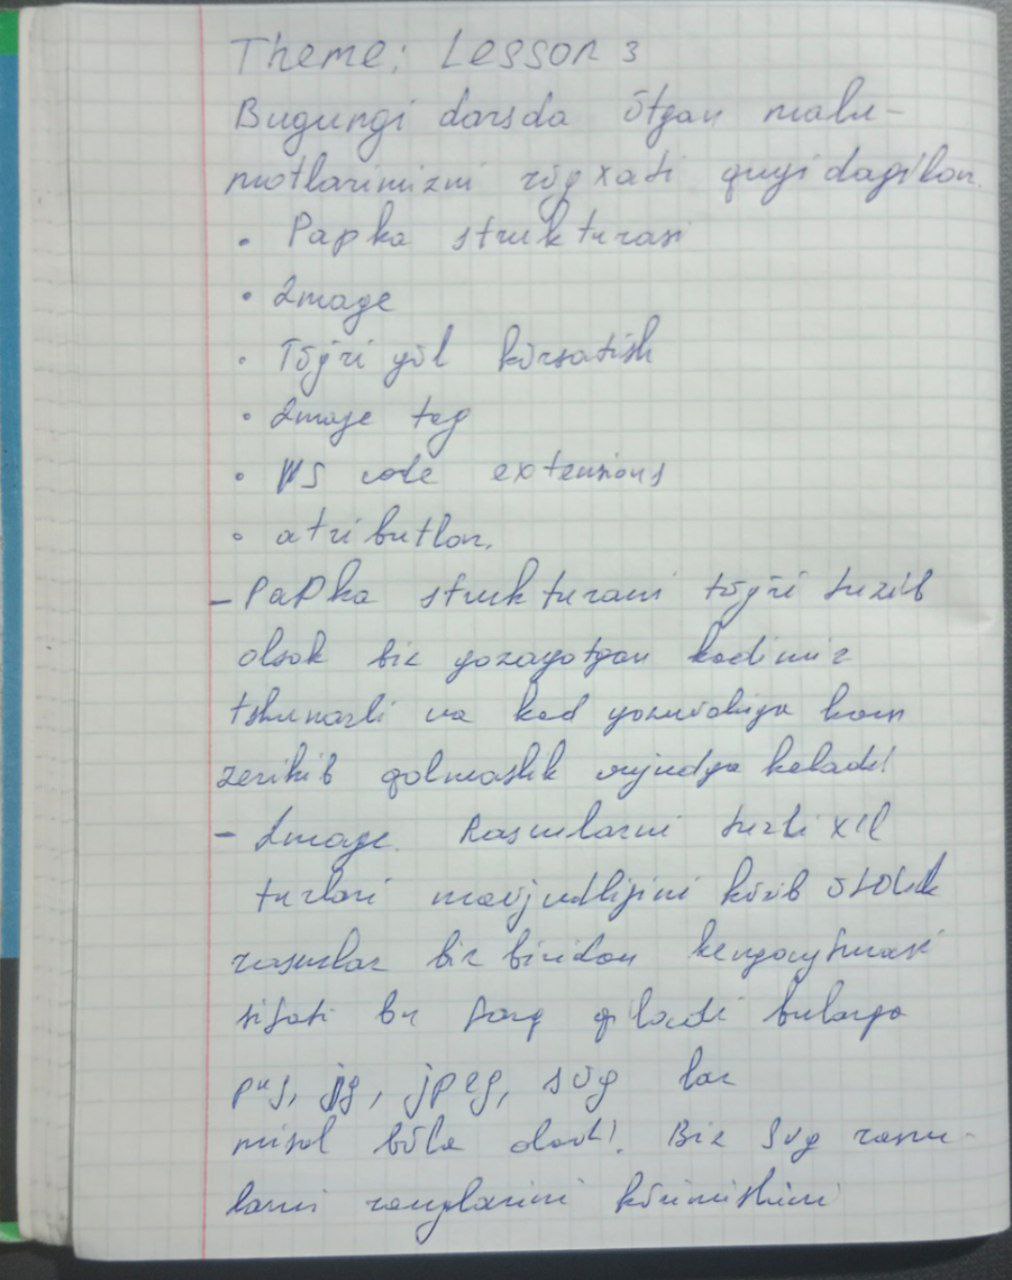 Theme: Lesson 3
Bugungi darsda ōtgan malu-
motlarimizni rōyxati quyidagilar.
• Papka strukturasi
• Image
• Tōg'ri yōl kōrsatish
• Image teg
• VS code extensions
• atributlar.
- Papka strukturani tōg'ri tuzib
olsak biz yozayotgan kodimiz
tshunarli va kod yozuvchiga ham
zerikib qolmaslik vujudga keladi!
- Image. Rasmlarni turli xil
turlari mavjudligini kōrib ōtdik
rasmlar bir biridan kengaytmasi
sifati bn farq qiladi bularga
png, jpg, jpeg, svg lar
misol bōla oladi! Biz svg rasm-
larni ranglarini kōrinishini